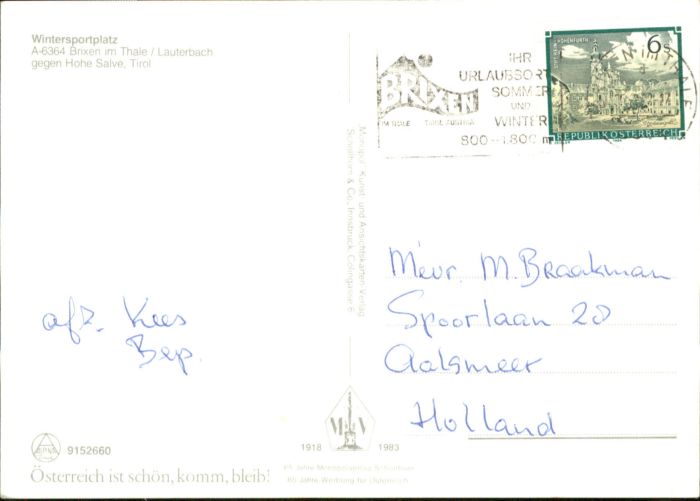 Wintersportplatz
A-6364 Brixen im Thale / Lauterbach
gegen Hohe Salve, Tirol
IHR
URLAUBSORT
SOMMER
UND
WINTER
800-1.800 m
BRIXEN
IM THALE TIROL AUSTRIA
STIFT REIN-HOHENFURTH
6 S
REPUBLIK ÖSTERREICH
„Monopol“ Kunst- und Ansichtskarten-Verlag
Schöllhorn & Co., Innsbruck, Colingasse 6
Mevr. M. Braakman
Spoorlaan 28
Aalsmeer
Holland
afz. Kees
Bep.
9152660
Österreich ist schön, komm, bleib!
M V
1918 1983
65 Jahre Monopolverlag Schöllhorn
65 Jahre Werbung für Österreich